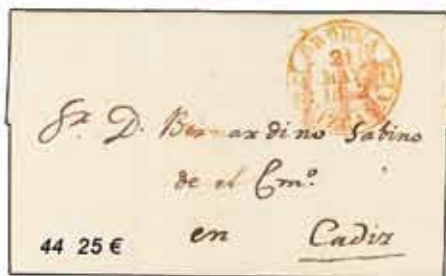 21
Sr. D. Bernardino Sabino
de el Cmo.
en Cadiz
44 25 €